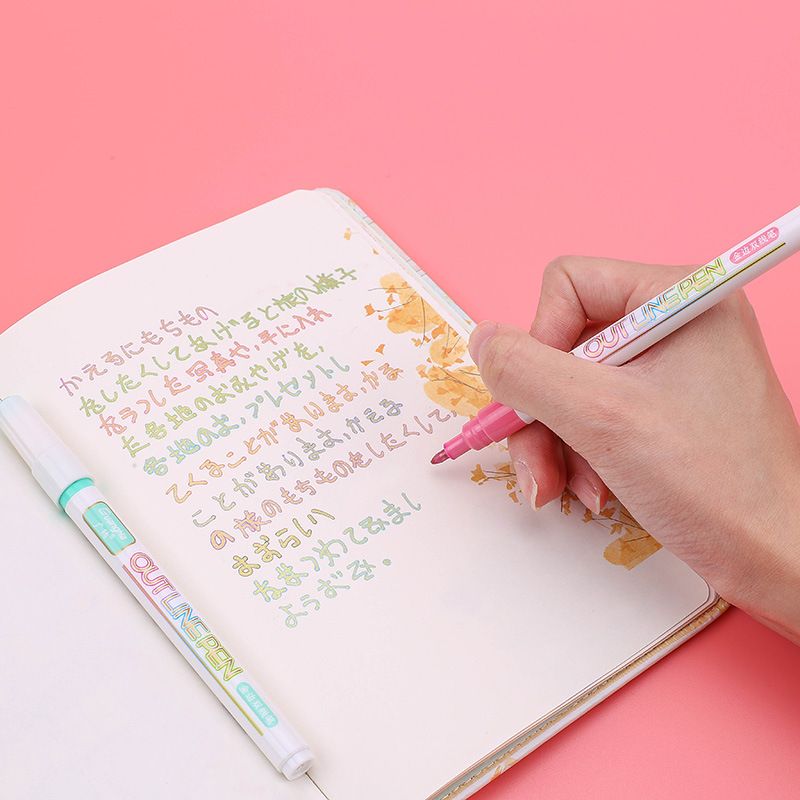 かえるにもちもの
をしたくしてあげると旅の様子
をうつした写真や,手に入れ
た各地のおみやげを,
各地のお,プレゼントし
てくることがあります,かえる
ことがあります,かえる
の旅のもちものをしたくして,
まずらしい
なまつわてみまし
ょうおを。
OUTLINE PEN
金边双线笔
OUTLINE PEN
金边双线笔